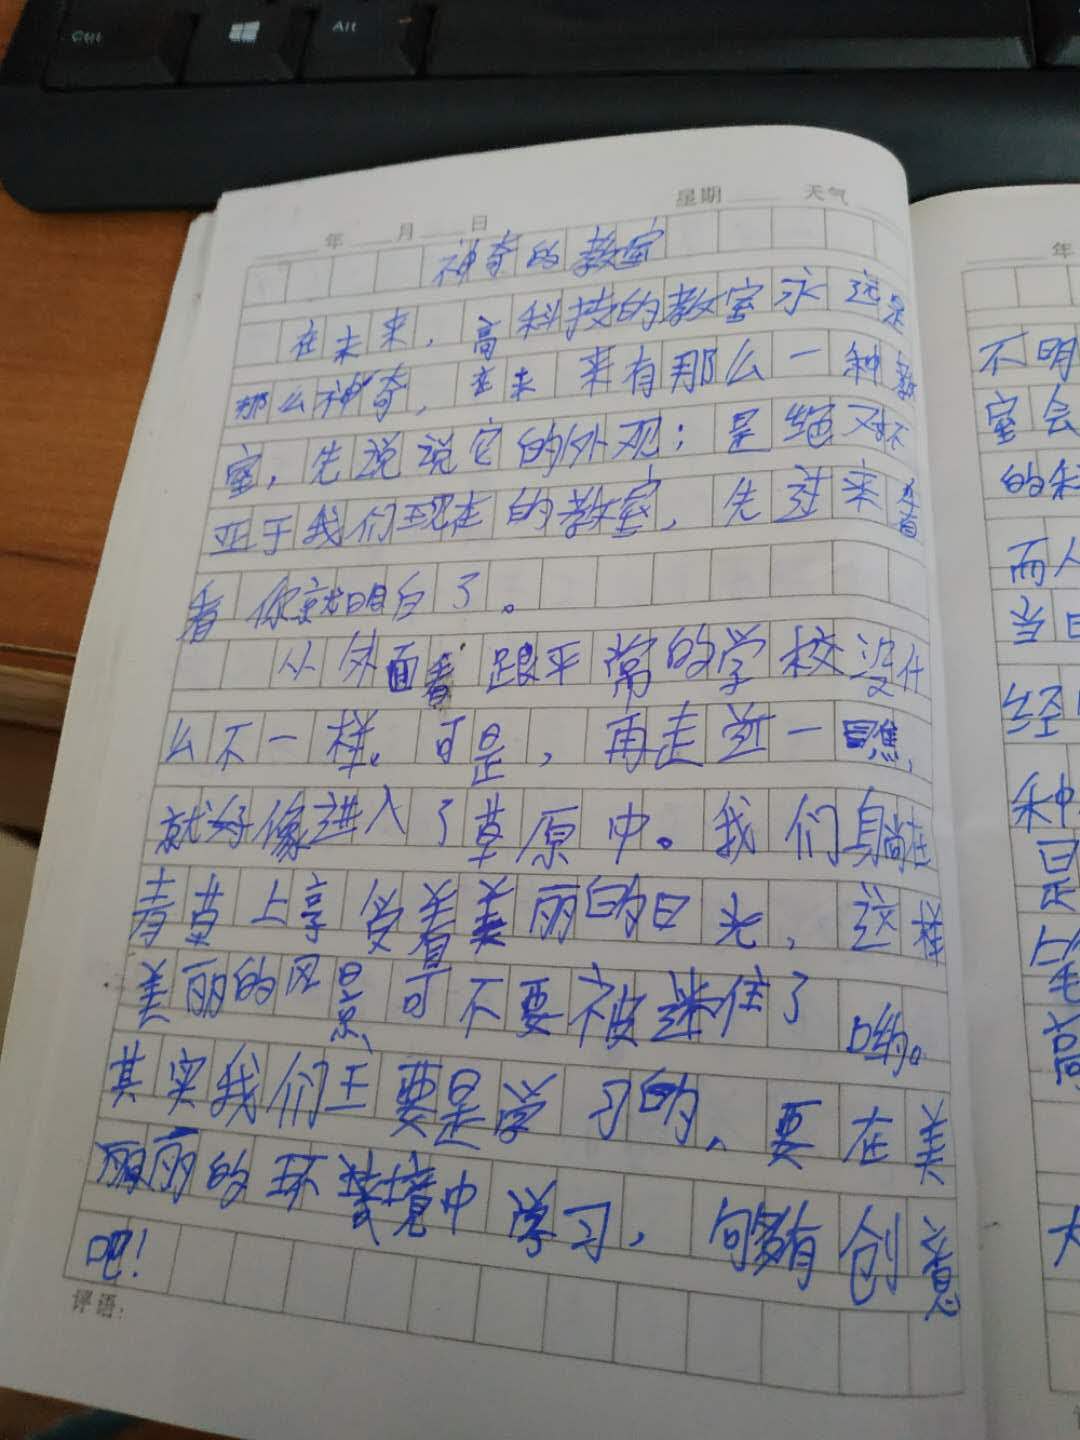 Ctrl
Alt
年 月 日 星期 天气
神奇的教室
在未来，高科技的教室永远是
那么神奇，来有那么一种教
室，先说说它的外观：是绝对不
亚于我们现在的教室，先过来看
看你就明白了。
从外面看跟平常的学校没什
么不一样。可是，再走近一瞧，
就好像进入了草原中。我们躺在
青草上享受着美丽的日光，这样
美丽的风景可不要被迷住了哟。
其实我们主要是学习的，要在美
丽的环境中学习，够有创意
吧！
评语：
年
不明
室会
的科
而人
当日
经
种
是
上
高
大